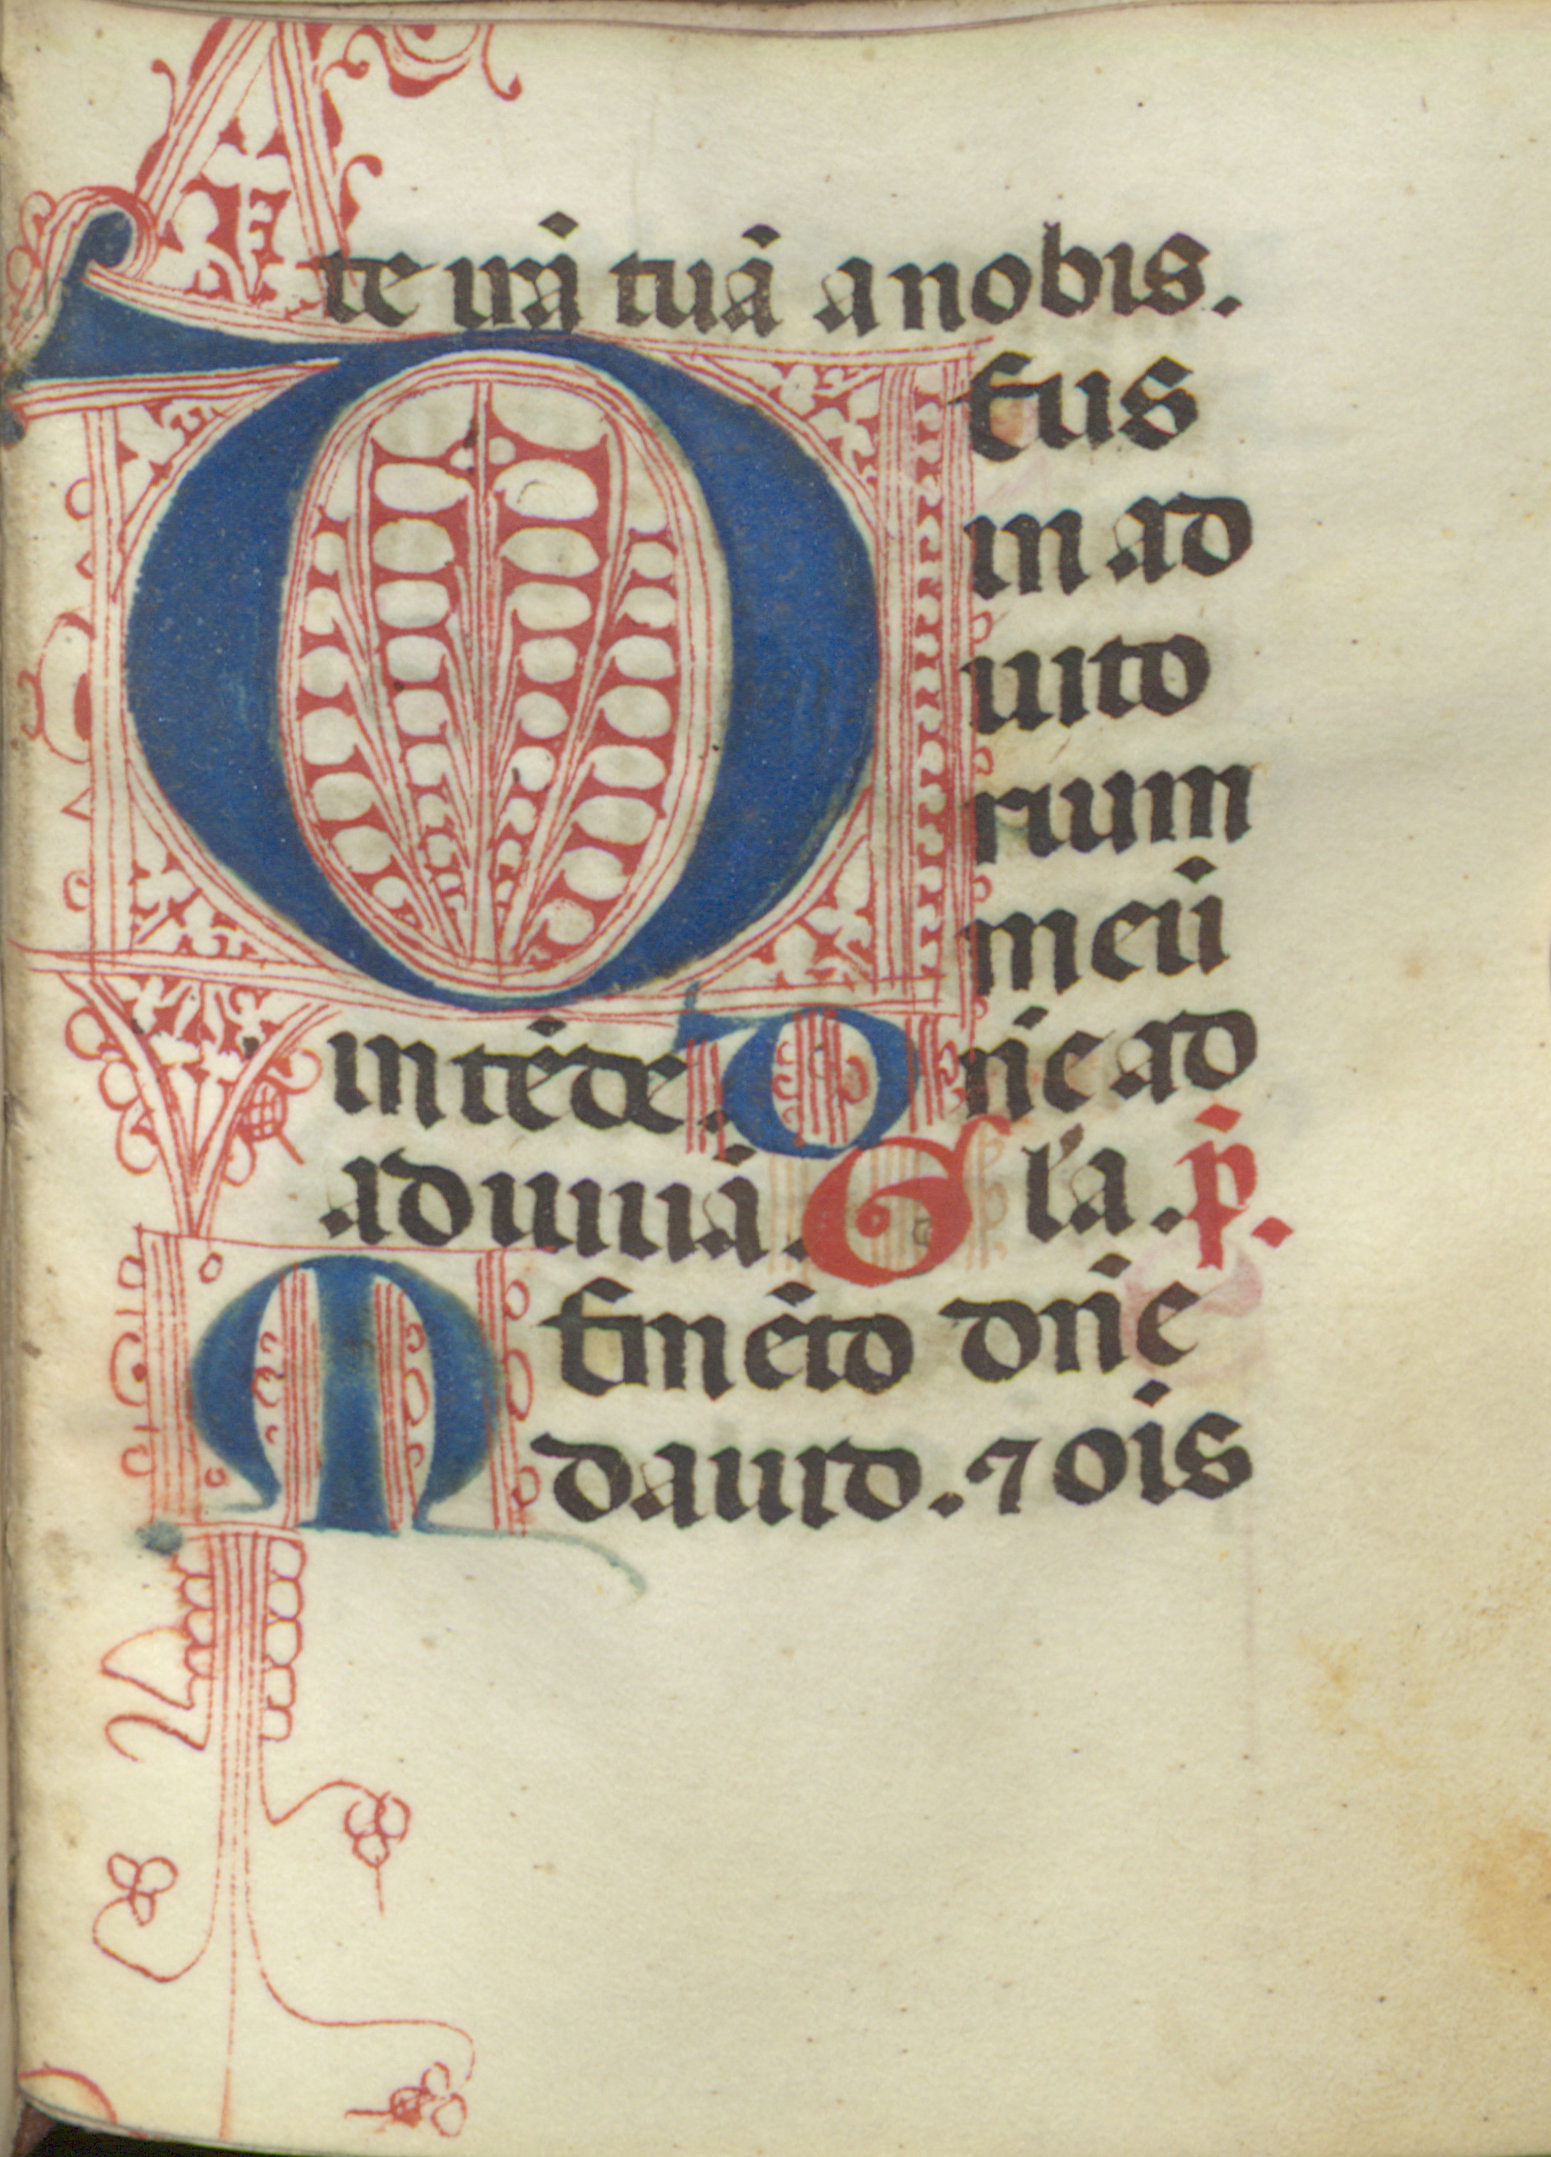 te irā tuā a nobis.
Deus
in ad
iuto
rium
meū
intēde. Dn̄e ad
adiuuā. Gl̄a. p̄.
Memēto dn̄e
dauid. ⁊ oīs